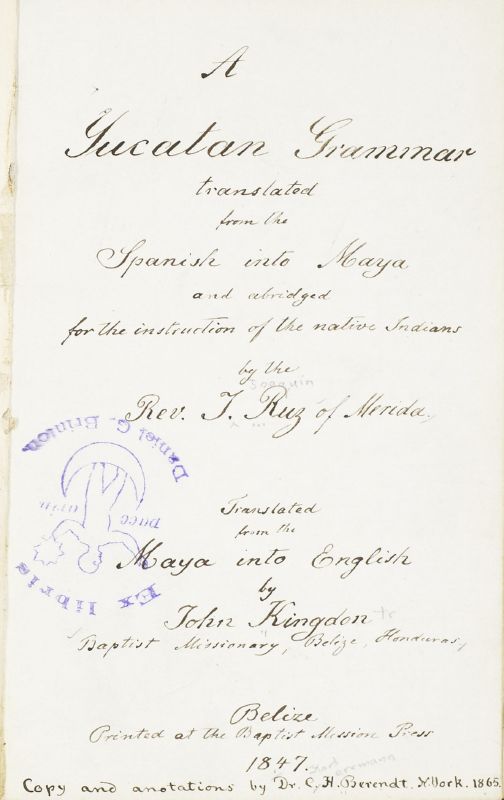 A
Yucatan Grammar
translated
from the
Spanish into Maya
and abridged
for the instruction of the native Indians
by the
Joaquin
Rev. J. Ruz of Merida.
Daniel G. Brinton
Ex libris
Translated
from the
Maya into English
by
John Kingdon
Baptist Missionary, Belize, Honduras,
Belize
Printed at the Baptist Mission Press
1847.
Copy and anotations by Dr. C. H. Berendt. N.York. 1865.